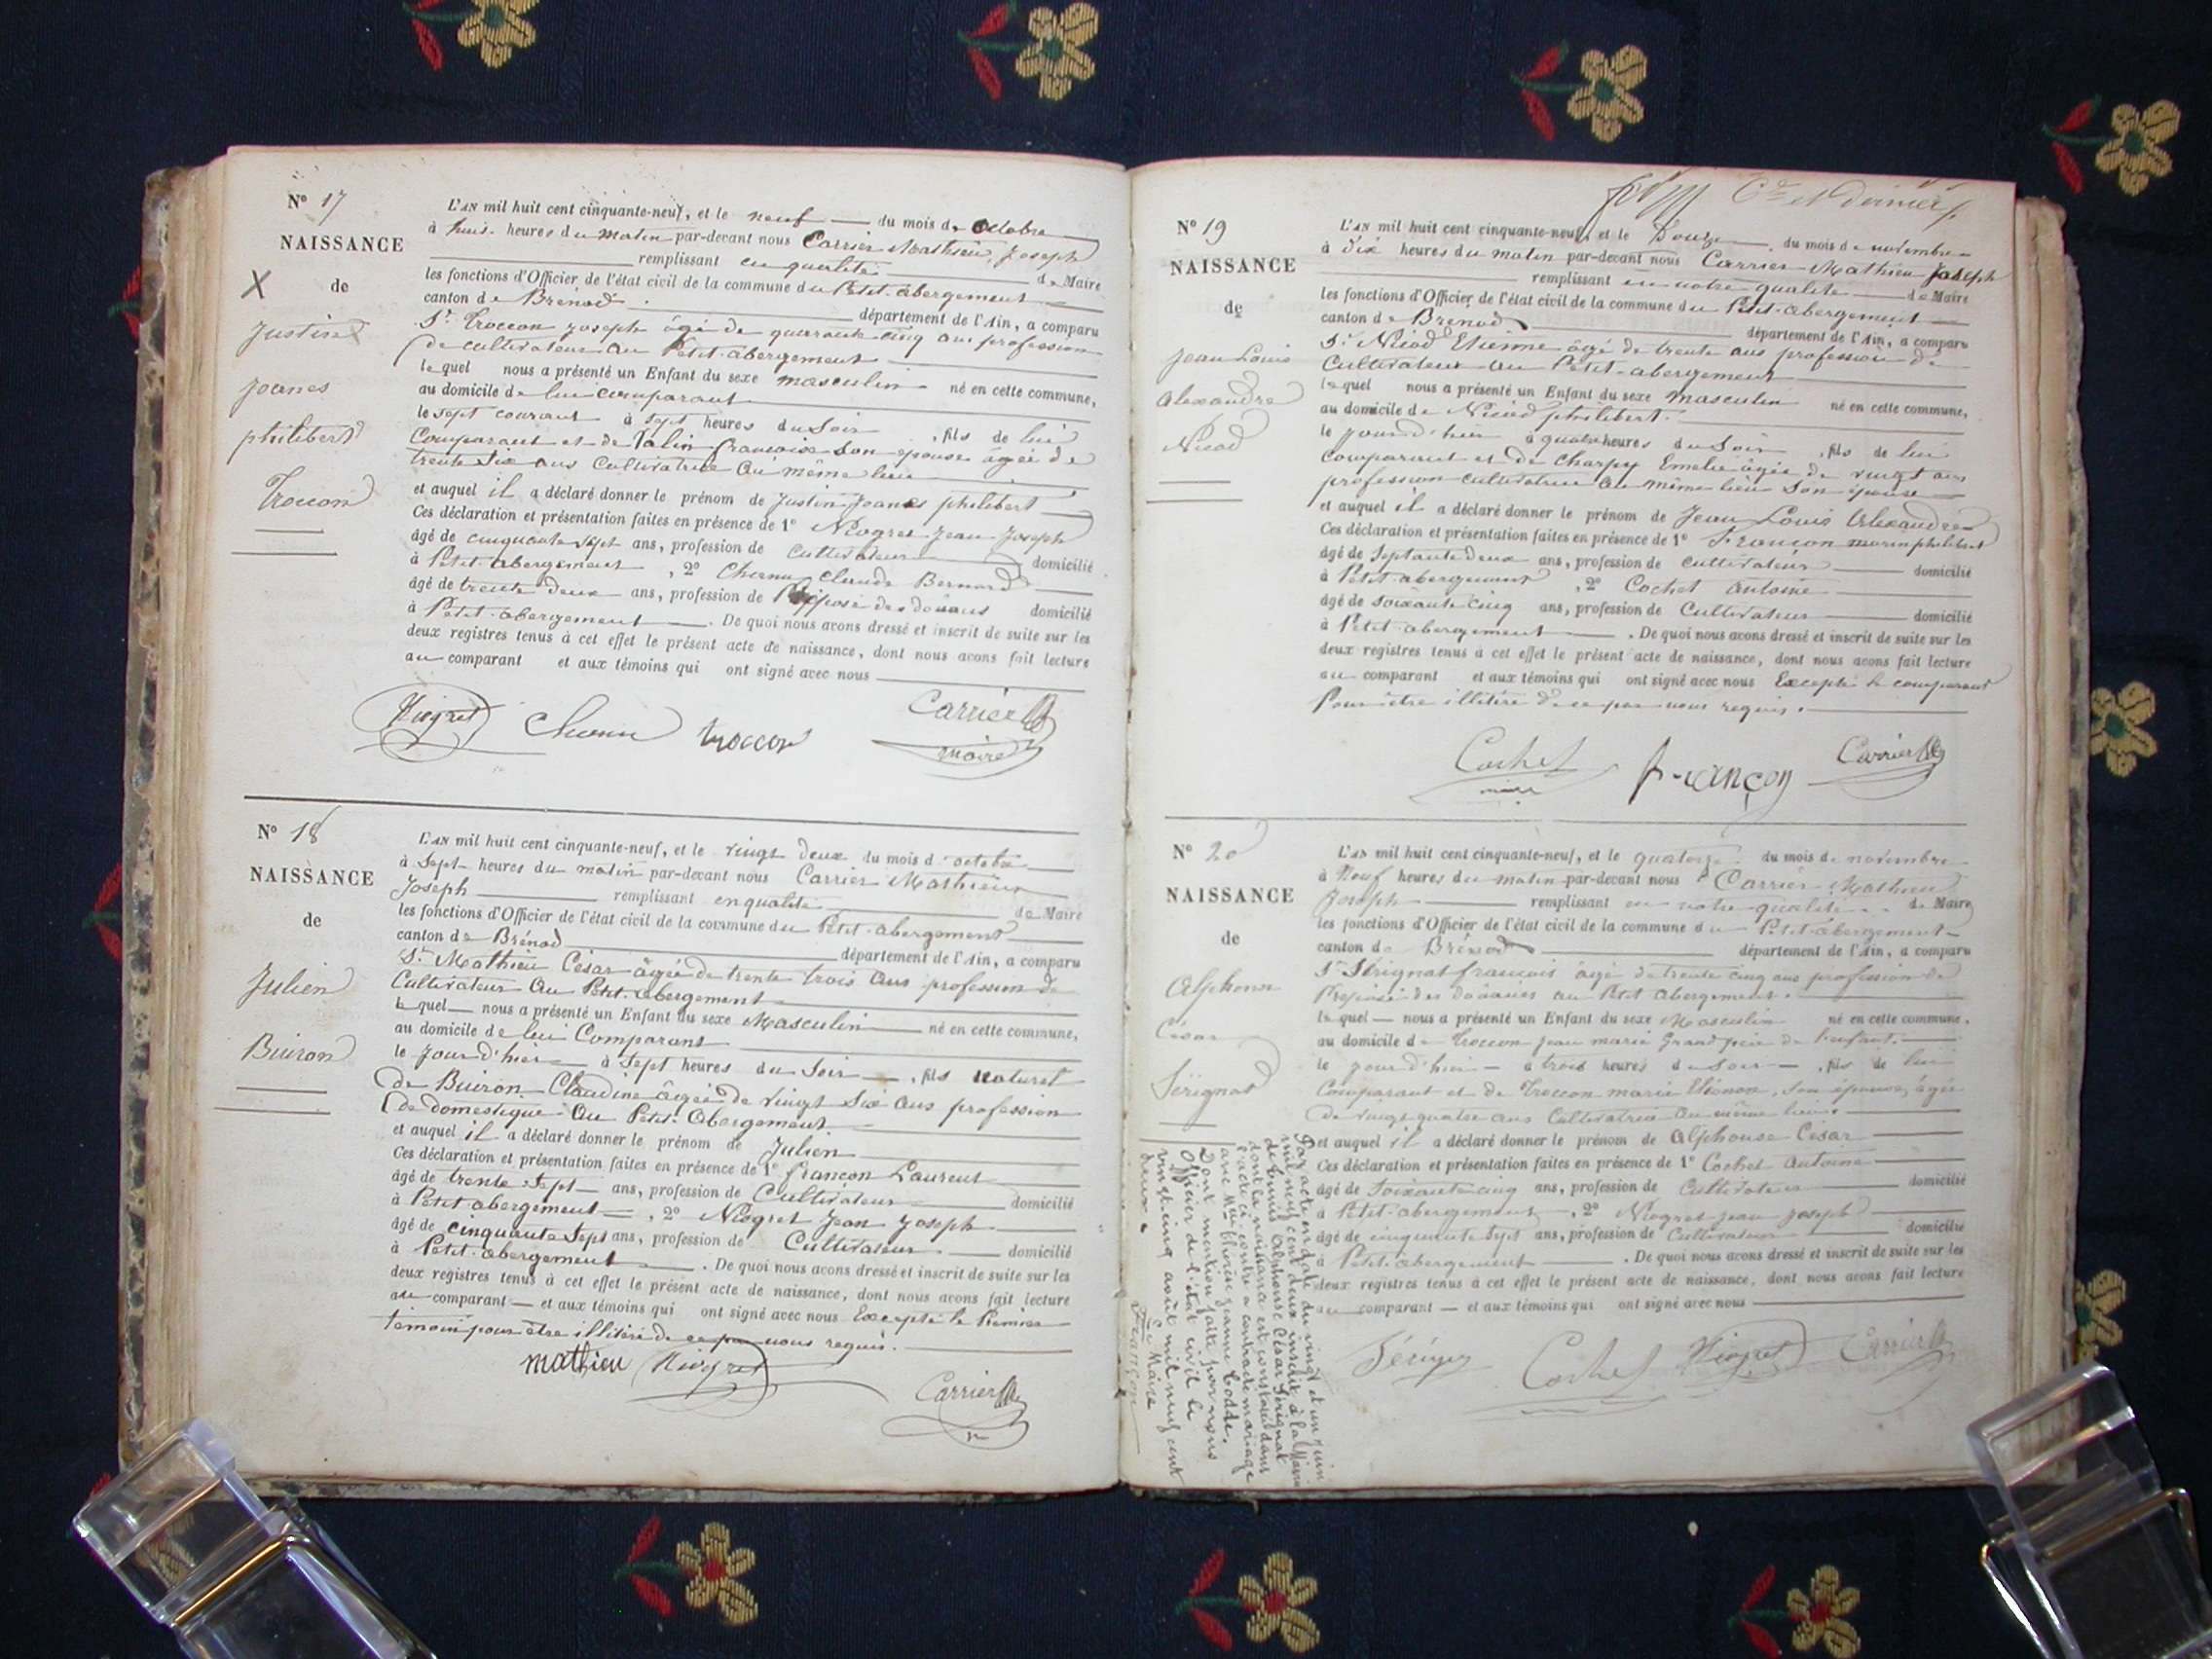 N° 17
NAISSANCE
X de
Justin
Joanes
philibert
Troccon
L'AN mil huit cent cinquante-neuf, et le neuf du mois de Octobre
à huit heures du matin par-devant nous Carrier Mathieu Joseph
remplissant en qualité de Maire
les fonctions d'Officier de l'état civil de la commune du Petit-abergement
canton de Brénod département de l'Ain, a comparu
Sr Troccon Joseph âgé de quarante cinq ans profession
de cultivateur au Petit-abergement
lequel nous a présenté un Enfant du sexe masculin né en cette commune,
au domicile de lui comparant
le sept courant à sept heures du Soir, fils de lui
Comparant et de Talin francoise son épouse âgée de
trente Six ans Cultivatrice au même lieu
et auquel il a déclaré donner le prénom de Justin Joanes philibert
Ces déclaration et présentation faites en présence de 1° Niogret Jean Joseph
âgé de cinquante sept ans, profession de Cultivateur domicilié
à Petit-abergement, 2° Claude Bernard
âgé de trente deux ans, profession de Préposé des douanes domicilié
à Petit-abergement. De quoi nous avons dressé et inscrit de suite sur les
deux registres tenus à cet effet le présent acte de naissance, dont nous avons fait lecture
au comparant et aux témoins qui ont signé avec nous
Niogret troccon Carrier
maire
N° 18
NAISSANCE
de
Julien
Buiron
L'AN mil huit cent cinquante-neuf, et le vingt deux du mois d'octobre
à Sept heures du matin par-devant nous Carrier Mathieu
Joseph remplissant en qualité de Maire
les fonctions d'Officier de l'état civil de la commune du Petit-abergement
canton de Brénod département de l'Ain, a comparu
Sr Mathieu César âgé de trente trois ans profession de
Cultivateur au Petit-abergement
lequel nous a présenté un Enfant du sexe Masculin né en cette commune,
au domicile de lui Comparant
le jour d'hier à Sept heures du Soir, fils naturel
de Buiron Claudine âgée de vingt Six ans profession
de domestique au Petit-abergement
et auquel il a déclaré donner le prénom de Julien
Ces déclaration et présentation faites en présence de 1° francon Laurent
âgé de trente Sept ans, profession de Cultivateur domicilié
à Petit abergement, 2° Niogret Jean Joseph
âgé de cinquante Sept ans, profession de Cultivateur domicilié
à Petit-abergement. De quoi nous avons dressé et inscrit de suite sur les
deux registres tenus à cet effet le présent acte de naissance, dont nous avons fait lecture
au comparant et aux témoins qui ont signé avec nous Excepté le Premier
témoin pour être illitéré de ce par nous requis.
mathieu Niogret
Carrier
et dernier
N° 19
NAISSANCE
de
Jean Louis
Alexandre
Nicod
L'AN mil huit cent cinquante-neuf, et le Douze du mois de novembre
à Dix heures du matin par-devant nous Carrier Mathieu Joseph
remplissant en notre qualité de Maire
les fonctions d'Officier de l'état civil de la commune du Petit-abergement
canton de Brénod département de l'Ain, a comparu
Sr Nicod Etienne âgé de trente ans profession de
Cultivateur au Petit-abergement
lequel nous a présenté un Enfant du sexe masculin né en cette commune,
au domicile de Nicod philibert.
le jour d'hier à quatre heures du Soir, fils de lui
Comparant et de Charpy Emelie âgée de vingt ans
profession cultivatrice au même lieu Son épouse
et auquel il a déclaré donner le prénom de Jean Louis Alexandre
Ces déclaration et présentation faites en présence de 1° Francon marin philibert
âgé de Septante deux ans, profession de cultivateur domicilié
à Petit abergement, 2° Cochet antoine
âgé de soixante cinq ans, profession de Cultivateur domicilié
à Petit abergement. De quoi nous avons dressé et inscrit de suite sur les
deux registres tenus à cet effet le présent acte de naissance, dont nous avons fait lecture
au comparant et aux témoins qui ont signé avec nous Excepté le comparant
Pour être illitéré de ce par nous requis.
Cochet françon Carrier
N° 20
NAISSANCE
de
Alphonse
César
Sérignat
L'AN mil huit cent cinquante-neuf, et le quatorze du mois de novembre
à Neuf heures du matin par-devant nous Carrier Mathieu
Joseph remplissant en notre qualité de Maire
les fonctions d'Officier de l'état civil de la commune du Petit-abergement
canton de Brénod département de l'Ain, a comparu
Sr Sérignat francois âgé de trente cinq ans profession de
Préposé des douanes au Petit abergement.
lequel nous a présenté un Enfant du sexe Masculin né en cette commune,
au domicile de Troccon jean marie Grand père de l'enfant.
le jour d'hier à trois heures du Soir, fils de lui
Comparant et de Troccon marie Eléonon, son épouse, âgée
de vingt quatre ans Cultivatrice au même lieu.
et auquel il a déclaré donner le prénom de Alphonse César
Ces déclaration et présentation faites en présence de 1° Cochet antoine
âgé de Soixante cinq ans, profession de Cultivateur domicilié
à Petit-abergement, 2° Niogret jean joseph
âgé de cinquante Sept ans, profession de Cultivateur domicilié
à Petit abergement. De quoi nous avons dressé et inscrit de suite sur les
deux registres tenus à cet effet le présent acte de naissance, dont nous avons fait lecture
au comparant et aux témoins qui ont signé avec nous
Cochet Niogret Carrier
Par acte en date du vingt et un juin
mil neuf cent deux inscrit à la Mairie
de Alphonse César Sérignat
dont la naissance est constatée dans
l'acte ci-contre a contracté mariage
avec Jeanne
Dont mention faite par nous
Officier de l'état civil le
vingt-cinq août mil neuf cent
deux.
Le Maire
Françon